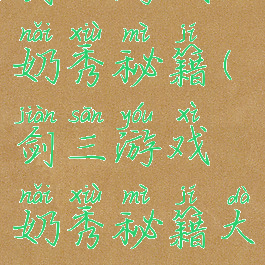 nǎi xiù mì jí
奶秀秘籍(
jiàn sān yóu xì
剑三游戏
nǎi xiù mì jí dà
奶秀秘籍大